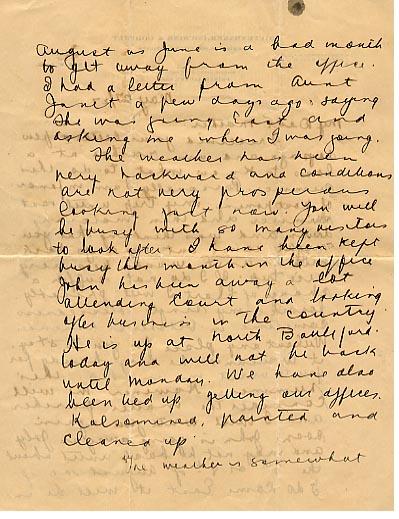 August as June is a bad month
to get away from the office.
I had a letter from Aunt
Janet a few days ago saying
she was going East and
asking me when I was going.
The weather has been
very backward and conditions
are not very prosperous
looking just now. You will
be busy with so many visitors
to look after. I have been kept
busy this month in the office
John has been away a lot
attending Court and looking
after business in the country.
He is up at North Battleford
today and will not be back
until Monday. We have also
been tied up getting our offices
Kalsomined, painted and
cleaned up.
The weather is somewhat